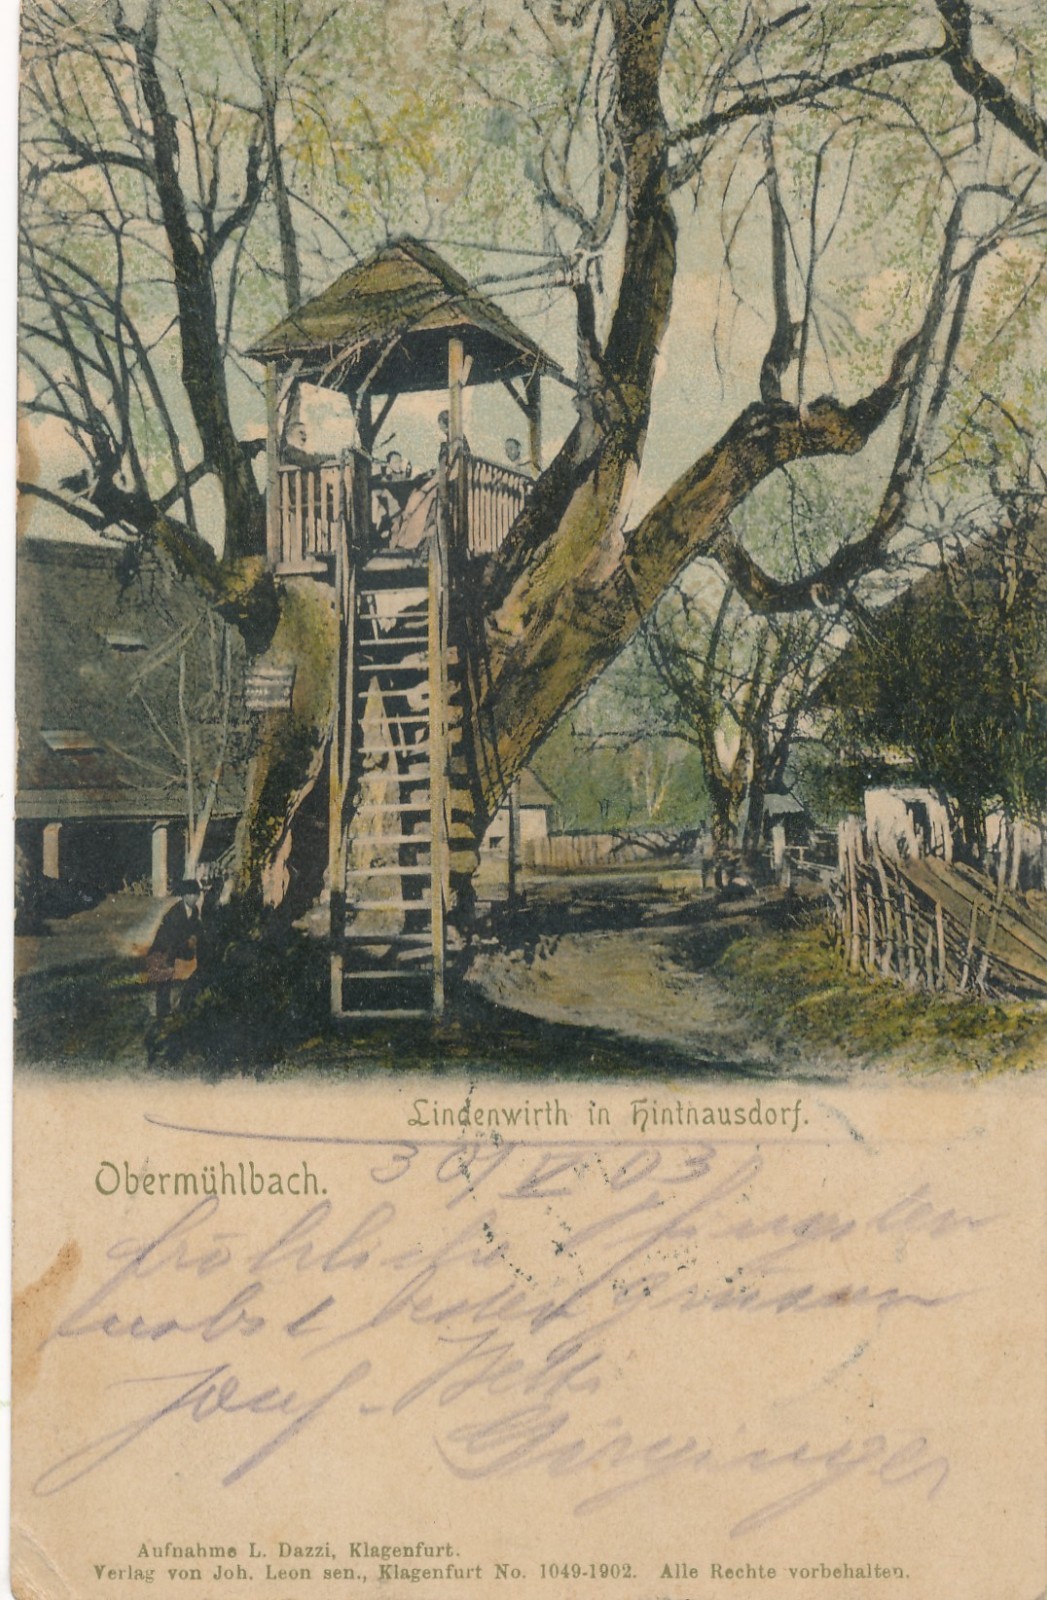 Lindenwirth in Hintnausdorf.
Obermühlbach. 30/V 03
fröhliche Pfingsten
nebst
Josef
Aufnahme L. Dazzi, Klagenfurt.
Verlag von Joh. Leon sen., Klagenfurt No. 1049-1902. Alle Rechte vorbehalten.